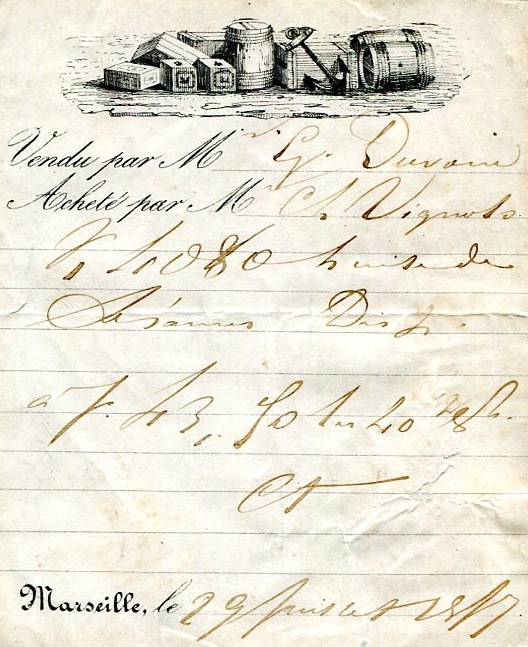 Vendu par Mr. Duvoin
Acheté par Mr Ch. Vignols
K. 4080 huile de
Sésames Disp.
à f. 43, 50 les 40
Ct
Marseille, le 29 Juillet 1857